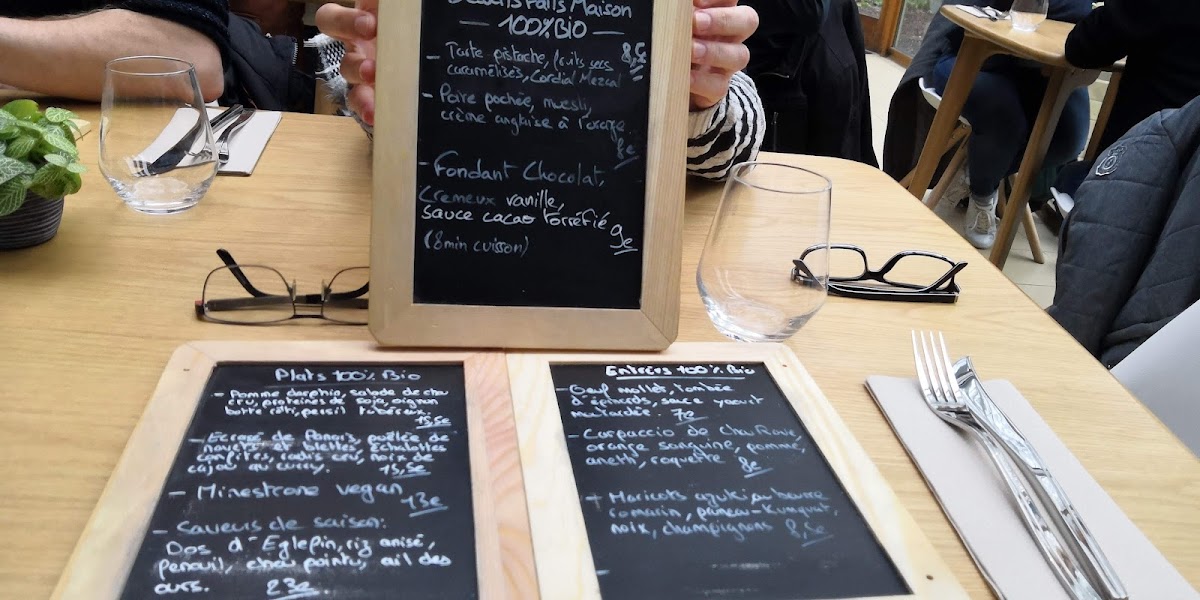 Desserts Faits Maison
100% Bio
- Tarte pistache, fruits secs
caramélisés, Cordial Mezcal
8,5€
- Poire pochée, muesli,
crème anglaise à l'orange.
8€
- Fondant Chocolat,
Crémeux vanille,
sauce cacao torréfié
(8min cuisson)
9€
Plats 100% Bio
- Pomme darphin, salade de chou
cru, protéines de soja, oignon
bette rôti, persil tubéreux.
15,5€
- Écrasé de Panais, poêlée de
navets et blettes, échalottes
confites, radis cru, noix de
cajou au curry.
15,5€
- Minestrone vegan
13€
- Saveurs de saison:
Dos d'Eglefin, riz anisé,
fenouil, chou pointu, ail des
ours. 23€
Entrées 100% Bio
- Oeuf mollet, tombée
d'épinards, sauce yaourt
moutardée. 7€
- Carpaccio de Chou Rave,
orange sanguine, pomme,
aneth, roquette 8€
+ Haricots azuki au beurre
romarin, Kumquat,
noix, champignons 8,5€